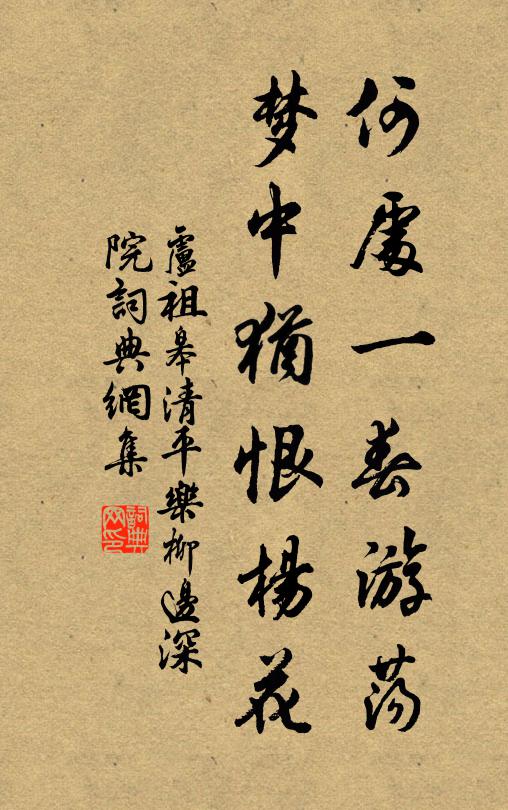 何處一春游荡
梦中猶恨楊花
盧祖皋清平樂柳邊深
院詞典網集
詞典网印